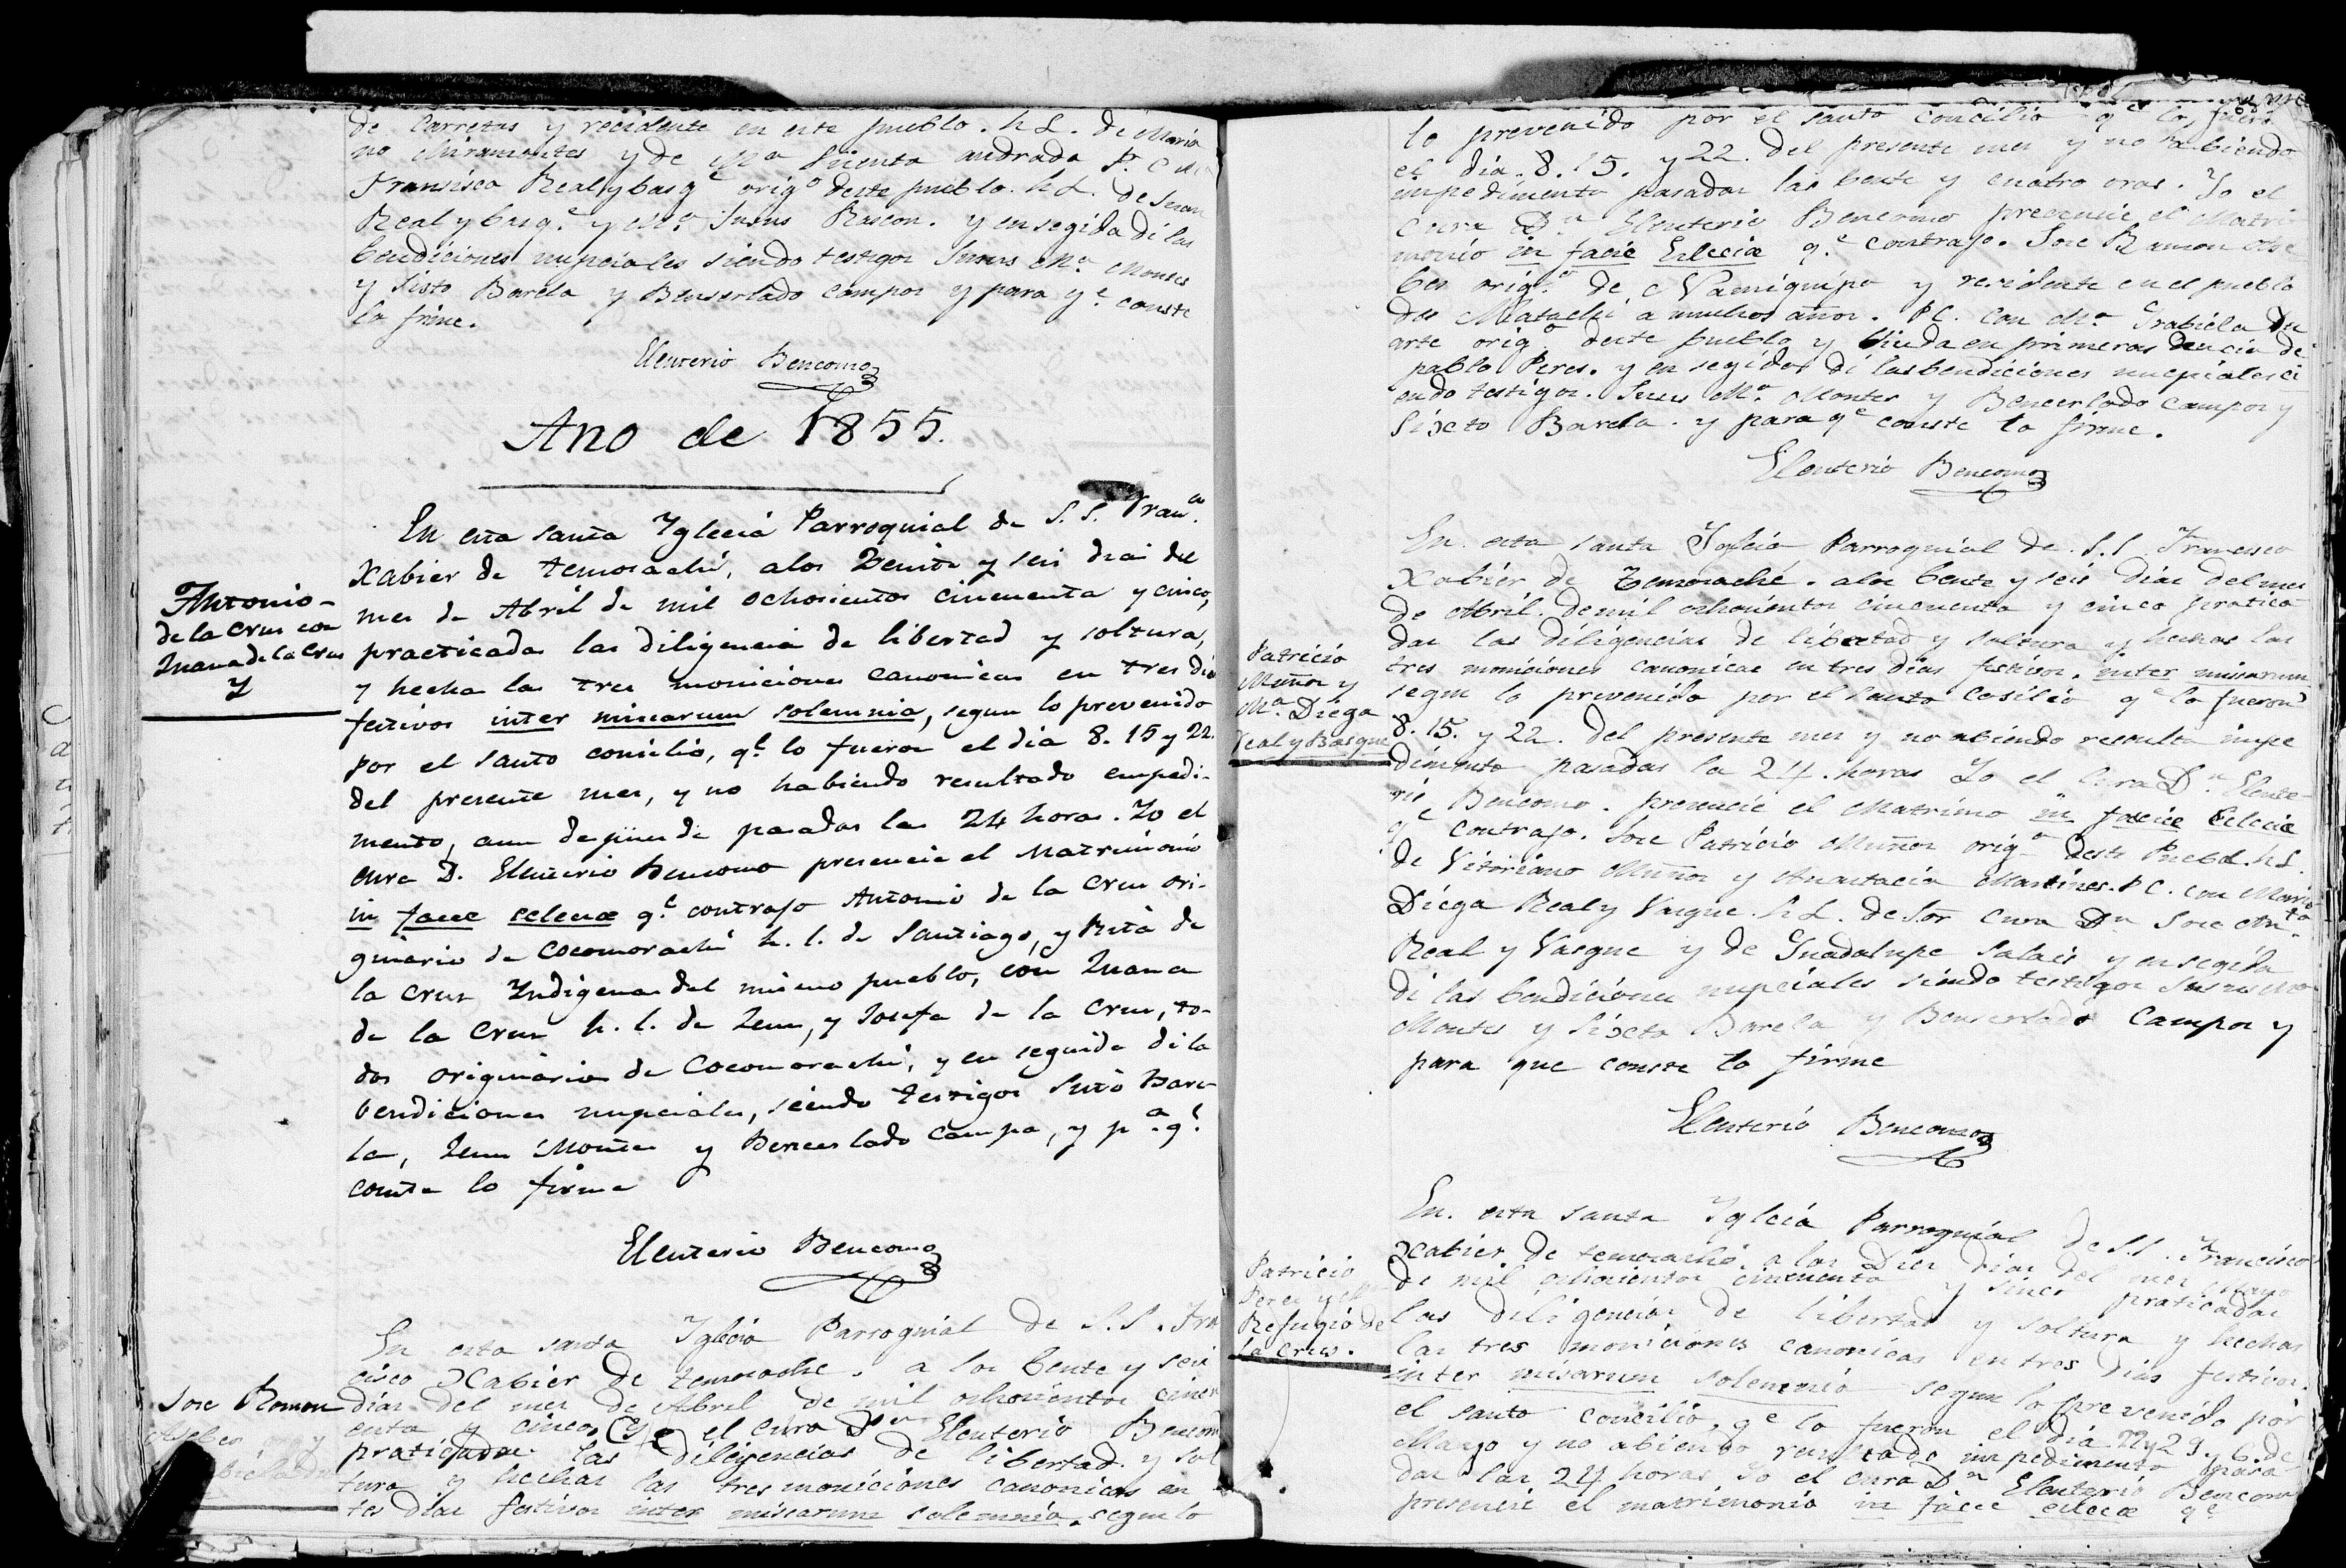 de Carretas y recidente en este pueblo. h L. de Maria
no Miramontes y de Mª andrada P. C
Fransisca Real y basqe origº deste pueblo. h L. de Juan
Real y basq.e y Mª. Jusus Rascon. y en segida di las
bendiciones nupciales siendo testigos Jusus Mª. Montes
y Sisto Barela y Benserlado campos y para q.e conste
lo firme.
Eleuterio Bencomo
Ano de 1855.
En esta santa Yglecia Parroquial de S. S. Franco.
Xabier de temosachi, a los Veinte y seis dias del
mes de Abril de mil ochosientos cincuenta y cinco,
Antonio
de la Crus con
Juana de la Crus
y
practicadas las diligencia de libertad y soltura,
y hecha las tres moniciones canonicas en tres dia
festivos inter missarum solemnia, segun lo prevenido
por el santo consilio, q.e lo fueron el dia 8. 15 y 22.
del presente mes, y no habiendo resultado empedi-
mento, aun despues de pasadas las 24 horas. Yo el
cura D. Eleuterio Bencomo presencie el Matrimonio
in facee eclecia q.e contrajo Antonio de la Crus ori-
ginario de Cocomorachi h. l. de Santiago, y Rita de
la Crus Yndigenas del mismo pueblo, con Juana
de la Crus h. l. de Jesus, y Josefa de la Crus, to-
dos originarios de Cocomorachi, y en seguida di la
bendiciones nupciales, siendo testigos Sisto Bare-
la, Jesus Montes y Benceslado Campa, y p.a q.e
conste lo firme
Eleuterio Bencomo
En esta santa Yglecia Parroquial de S. S. Fran
cisco Xabier de temosache. a los bente y seis
Jose Ramon
dias del mes de Abril de mil ochosientos cincu
enta y cinco, el cura Dn Eleuterio Bencomo
praticadas las diligencias de libertad y sol
tura y hechas las tres moniciones canonicas en
tes dias festivos inter missarum solemnia. segun lo
lo prevenido por el santo concilio qe lo fueron
el dia. 8. 15. y 22. del presente mes y no habiendo
impedimento pasadas las bente y cuatro oras. Yo el
cura Dn Eleuterio Bencomo precencie el Matri
monio in facie Eclecia q.e contrajo. Jose Ramon
origº. de Namiquipa y residente en el pueblo
de Matachi a muchos años. P C. con Mª Grabiela Du
arte origº deste pueblo y biuda en primeras nucias de
pablo Peres. y en segidas di las bendiciones nucpiales ci
endo testigos. Jusus Mª. Montes y Bencerlado Campos y
Sixto Barela. y para qe conste lo firme.
Eleuterio Bencomo
En esta santa Yglecia Parroquial de S. S. Francisco
Xabier de Temosaché. a los bente y seis dias del mes
de Abril. de mil ochosientos cincuenta y cinco pratica
das las diligencias de libertad y soltura y hechas las
Patricio
Muños y
Mª. Diega
Real y Basque
tres moniciones canonicas en tres dias festivos. inter misarum
segun lo prevenido por el santo Cosilio qe lo fueron
8. 15. y 22. del presente mes y no abiendo resulta inpe
dimento pasadas la 24. horas Yo el Cura Dn. Eleute
rio Bencomo. presencie el Matrimo in facice Eclecie
qe contrajo. Jose Patricio Muños origº deste Puebl. h L.
de Vitoriano Muños y Anastacia Martines. P C. con Maria
Diega Real y Vasque. h L. de Sor Cura Dn Jose Anto
Real y Vasque y de Guadalupe Salais y en segida
di las bendiciones nupciales siendo testigos Jusus Ma
Montes y Sixto Barela y Benserlado Campos y
para que conste lo firme
Eleuterio Bencomo
En. esta santa Yglecia Parroquial de S.S. Francisco
Xabier de temosachi. a los Dies dias del mes Mayo
Patricio
Peres y
Refugio de
la Crus.
de mil ochosientos cincuenta y sinco praticadas
las diligencias de libertad y soltura y hechas
las tres moniciones canonicas en tres dias festivos.
inter misarum solemnia segun lo prevenido por
el santo Concilio, qe lo fueron el dia 22 y 29 y 6. de
Mayo y no abiendo resultado impedimento pasa
das las 24 horas Yo el cura Dn Eleuterio Bencomo
presencie el matrimonio in facee eclecia qe